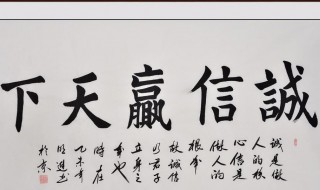 誠信贏天下
誠是做
人的核
心信是
做人的
根本
故誠信
乃君子
立身之
本也
時在
乙未年
於京